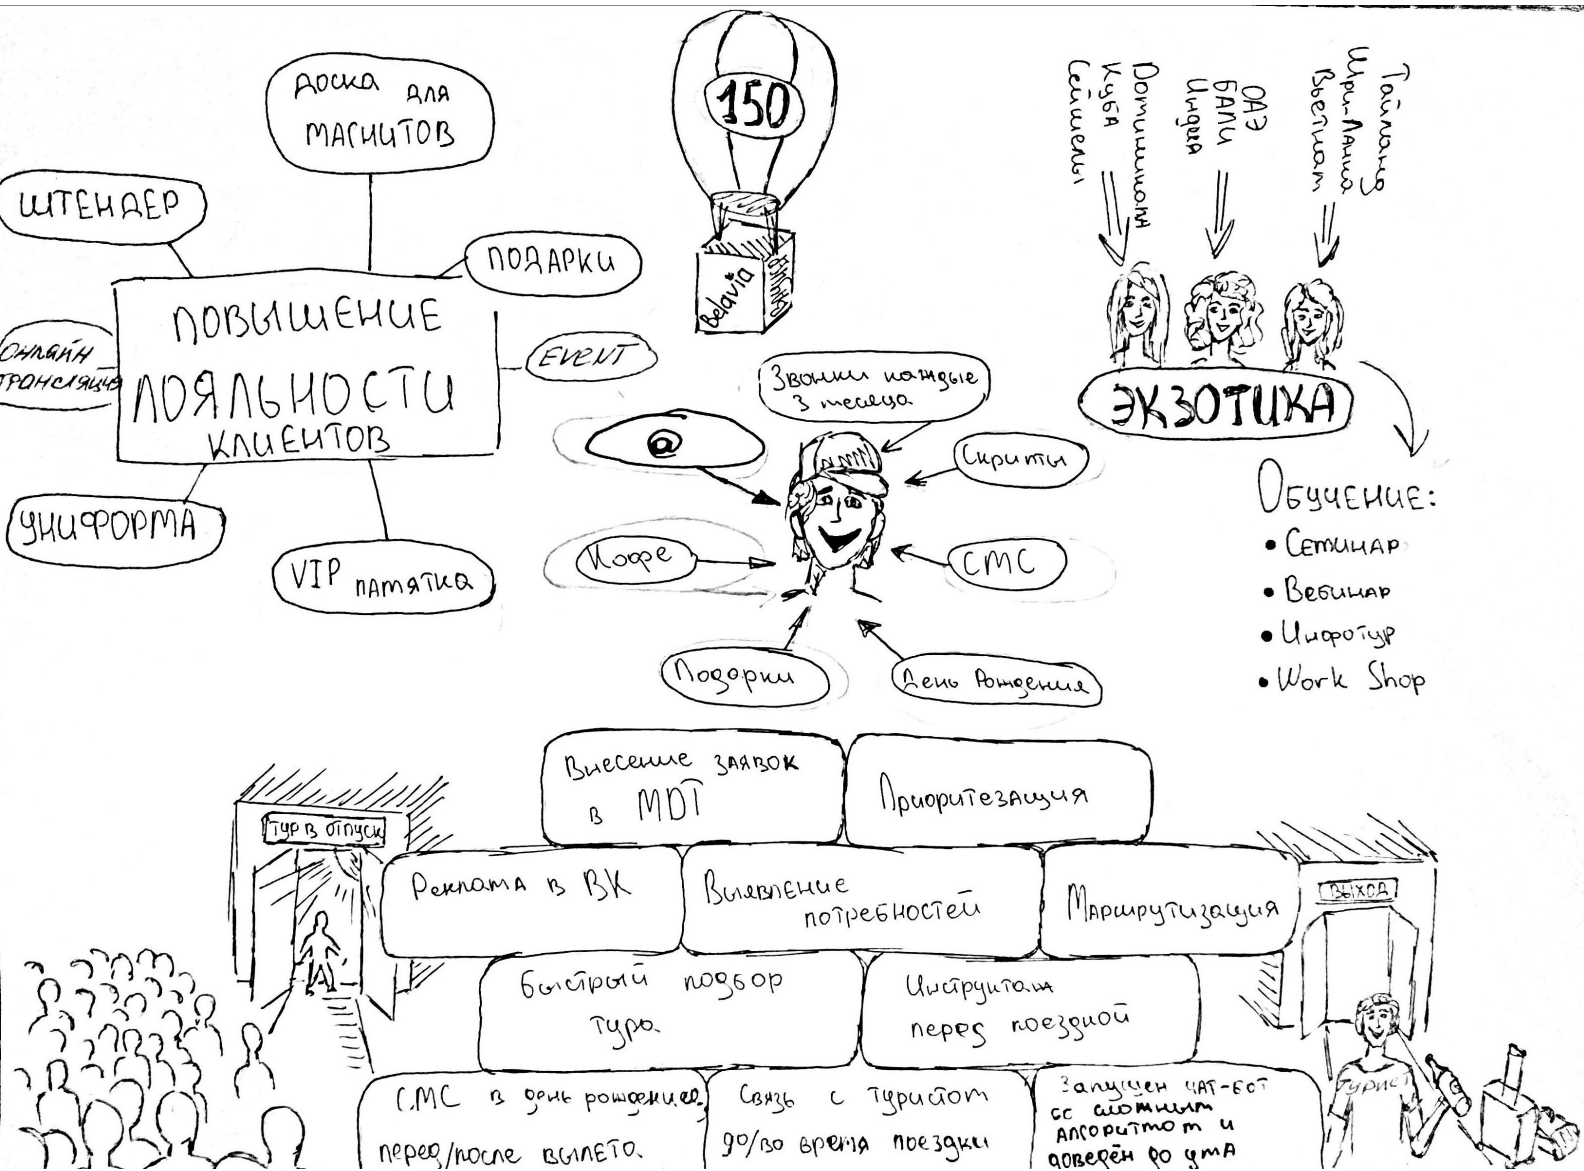 ДОСКА ДЛЯ
МАГНИТОВ
ШТЕНДЕР
ПОДАРКИ
ПОВЫШЕНИЕ
ЛОЯЛЬНОСТИ
КЛИЕНТОВ
ОНЛАЙН
ТРАНСЛЯЦИЯ
EVENT
УНИФОРМА
VIP ПАМЯТКА
150
Belavia
Доминикана
Куба
Сейшелы
ОАЭ
БАЛИ
Индия
Тайланд
Шри-Ланка
Вьетнам
ЭКЗОТИКА
Обучение:
• Семинар
• Вебинар
• Инфотур
• Work Shop
Звонки каждые
3 месяца
@
Скрипты
Кофе
СМС
Подарки
День Рождения
Внесение заявок
в MDT
Приоритезация
ТУР В ОТПУСК
Реклама в ВК
Выявление
потребностей
Маршрутизация
ВЫХОД
Быстрый подбор
тура
Инструктаж
перед поездкой
СМС в день рождения,
перед/после вылета
Связь с туристом
до/во время поездки
Запущен чат-бот
со сложным
алгоритмом и
доведён до ума
Турист